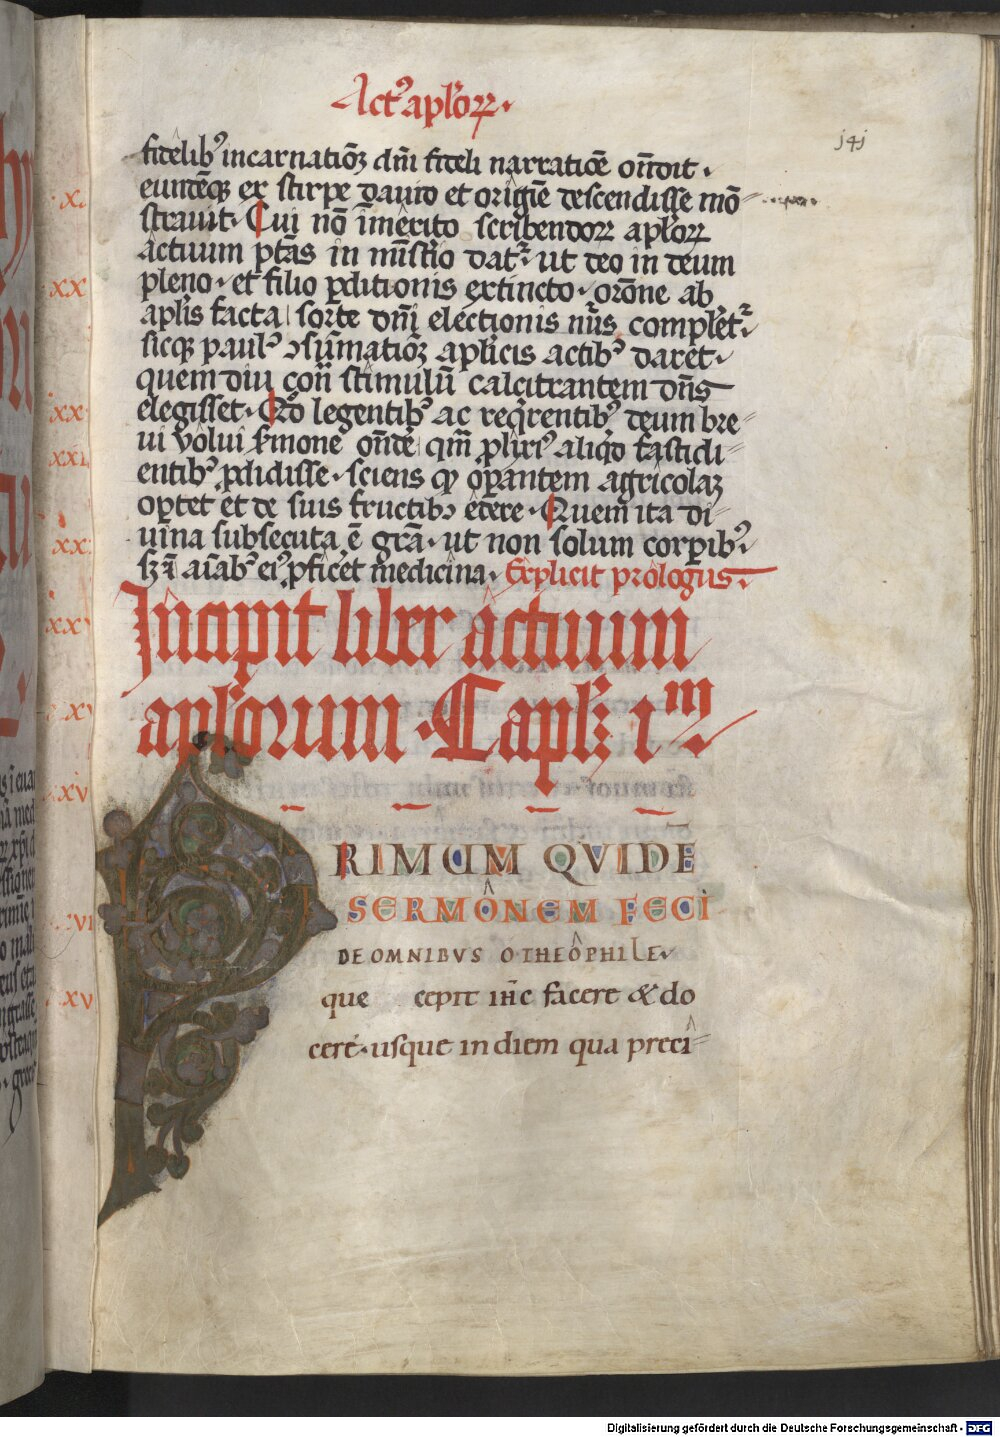 Act᷒ apl̄oꝝ.
141
fidelib᷒ incarnatiōꝫ dn̄i fideli narratiōe on̄dit.
eundēqꝫ ex stirpe dauid et origīe descendisse mō
strauit. Cui nō īmerito scribendoꝝ apl̄oꝝ
actuum ptās̄ in mīstīo dat᷒. ut deo in deum
pleno. et filio ꝑditionis extincto. or̄one ab
apl̄is facta sorte dn̄i electionis nūs complet᷒.
sicqꝫ paul᷒ ꝯsūmatiōꝫ apl̄icis actib᷒ daret.
quem diu con̄ stimulū calcitrantem dn̄s
elegisset. Qd̄ legentib᷒ ac reqꝛentib᷒ deum bre
ui volui s̄mone on̄de qm̄ ꝓlixi᷒ aliqd̄ fastidi
entib᷒ ꝓdidisse. sciens qꝫ oꝑantem agricolaꝫ
oꝑtet et de suis fructibꝫ edere. Quem ita di
uina subsecuta ē grā. ut non solum corꝑib᷒.
sꝫ ī aīab᷒ ei᷒ ꝓficēt medicina. Explicit prologus.
Incipit liber actuum
apl̄orum. Capl̄ꝫ iᵐ
PRIMUM QVIDĒ
SERMONEM FECI
DE OMNIBVS O THEOPHILE.
que cepit ih̄c facere & do
cere. usque in diem qua preci
Digitalisierung gefördert durch die Deutsche Forschungsgemeinschaft - DFG